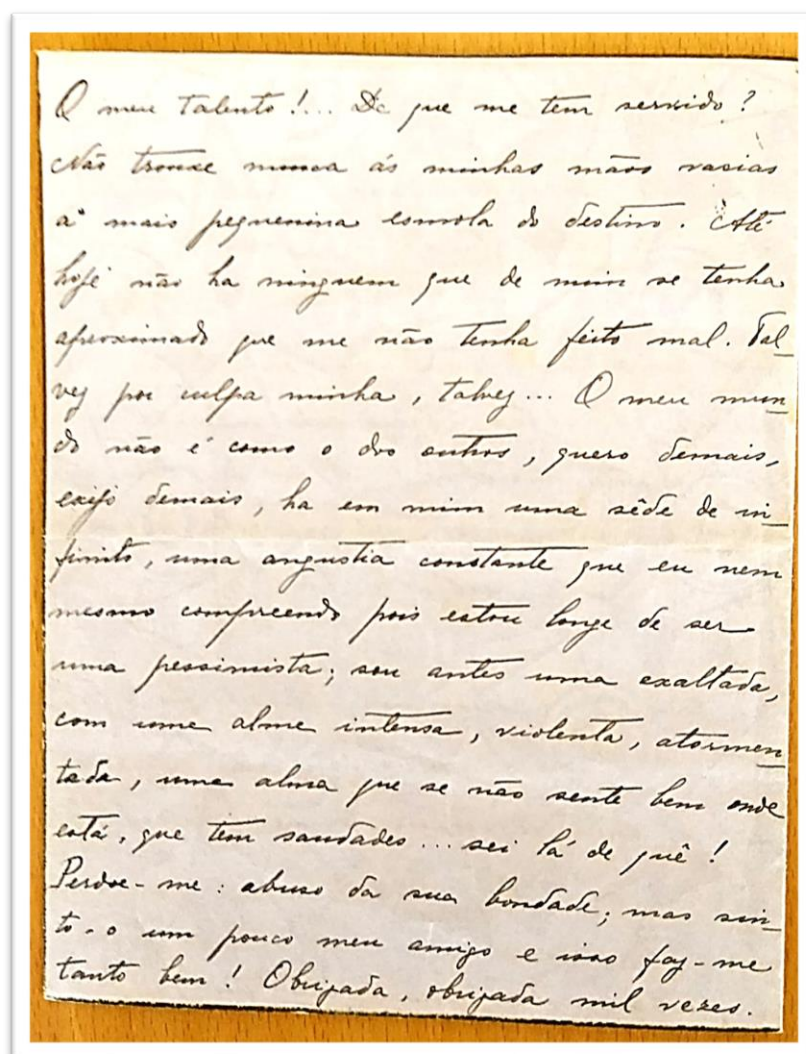 O meu talento!... De que me tem servido?
Não trouxe nunca ás minhas mãos vasias
a mais pequenina esmola do destino. Até
hoje não ha ninguem que de mim se tenha
aproximado que me não tenha feito mal. Tal_
vez por culpa minha, talvez... O meu mun_
do não é como o dos outros, quero demais,
exijo demais, ha em mim uma sêde de in_
finito, uma angustia constante que eu nem
mesmo compreendo pois estou longe de ser
uma pessimista; sou antes uma exaltada,
com uma alma intensa, violenta, atormen_
tada, uma alma que se não sente bem onde
está, que tem saudades... sei lá de quê!
Perdoe-me: abuso da sua bondade; mas sin_
to-o um pouco meu amigo e isso faz-me
tanto bem! Obrigada, obrigada mil vezes.